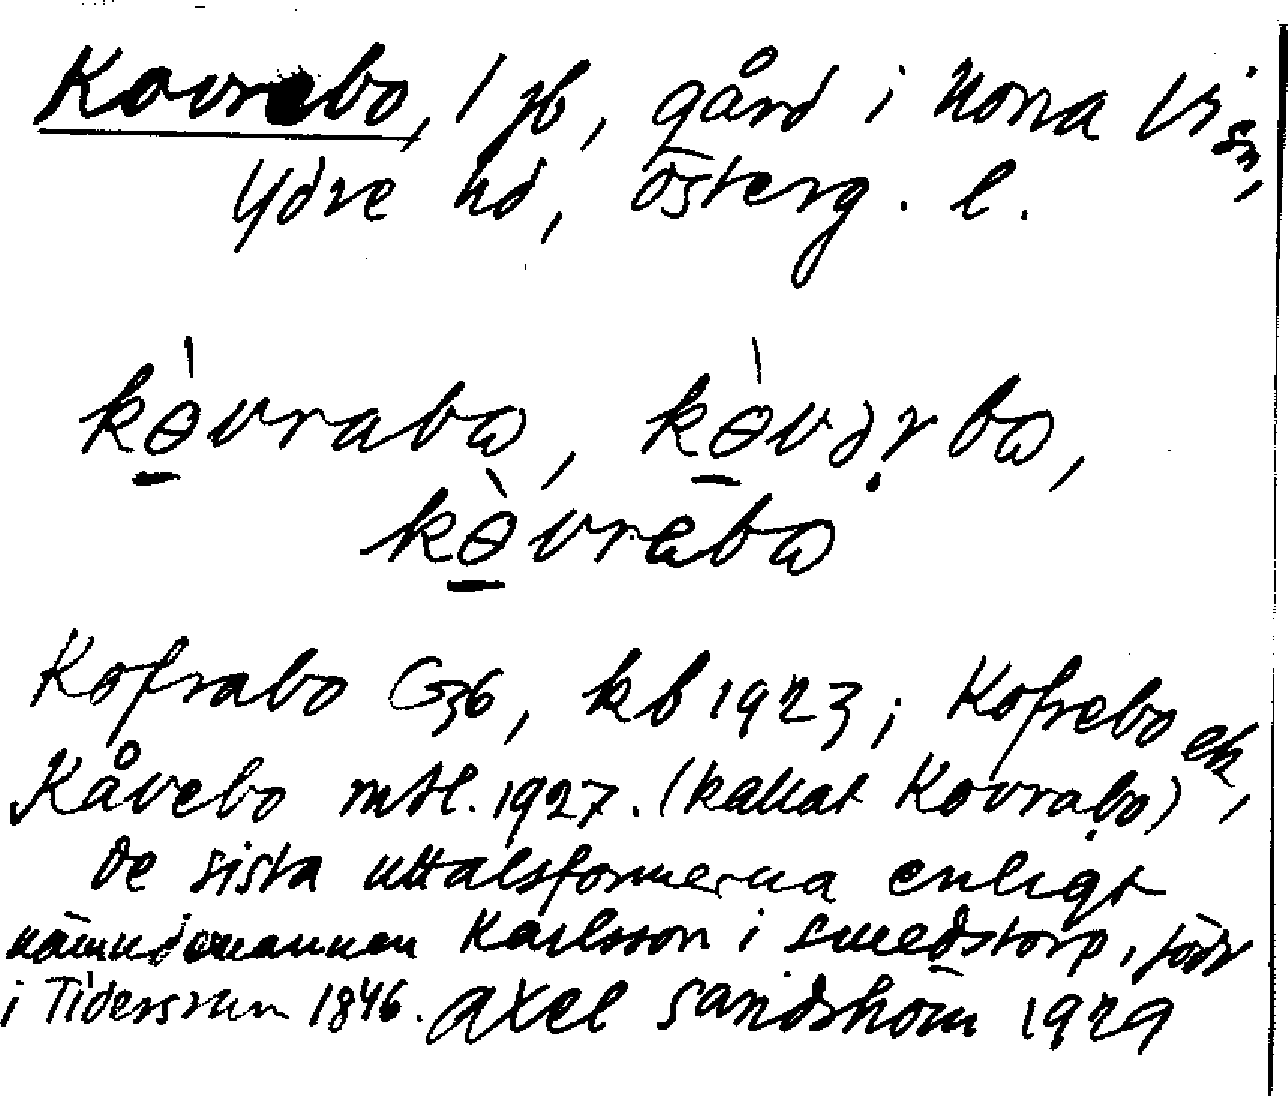 Kovrebo, 1 gb, gård i Norra Vi sn,
Ydre hd, Österg. l.
kɵ̀vrabω, kɵ̀vəṛbω,
kɵ̀vrebω
Kofrabo G36, kb 1923; Kofrebo ek,
Kåvebo mtl. 1927. (kallat Kovrabo)
De sista uttalsformerna enligt
nämndemannen Karlsson i Smedstorp, född
i Tidersrum 1846. Axel Sandström 1929